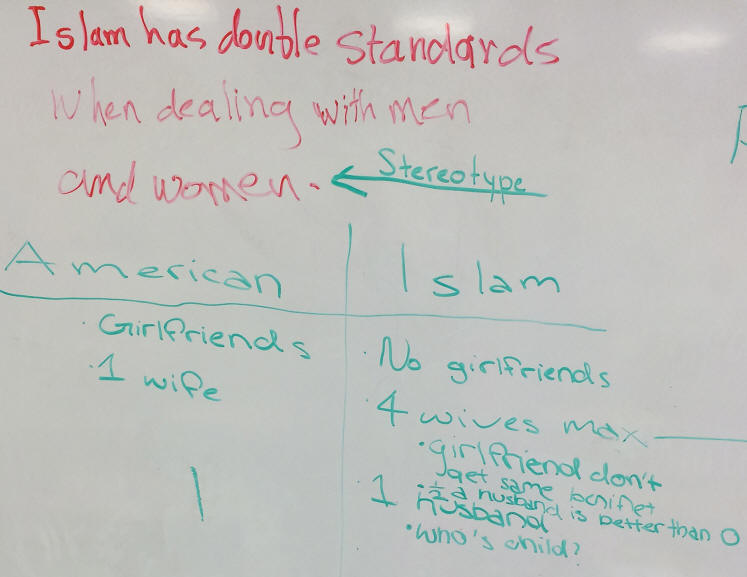 Islam has double standards
when dealing with men
and women. ← Stereotype
American
Islam
· Girlfriends
· 1 wife
· No girlfriends
· 4 wives max
· girlfriend don't
get same benifet
· 1/2 a husband is better than 0
· 1 husband
· who's child?